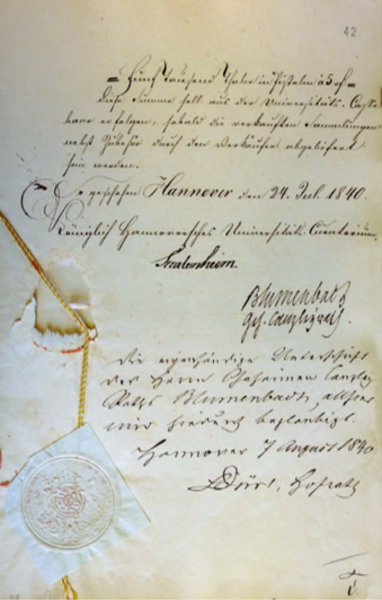 42
= Fünf tausend Thaler in Pistolen à 5 rf =
diese Summe soll aus der Universitäts-Casse
baar erfolgen, sobald die verkauften Sammlungen
nebst Zubehör durch den Verkäufer abgeliefert
sein werden.
So geschehen Hannover den 24. Jul. 1840.
Königlich Hannoversches Universitäts-Curatorium.
Stralenheim.
Blumenbach
Geh. Canzleyrath.
Die eigenhändige Unterschrift
des Herrn Geheimen Canzley
Raths Blumenbach, allhier
wird hierdurch beglaubigt.
Hannover 7 August 1840
Hofrath